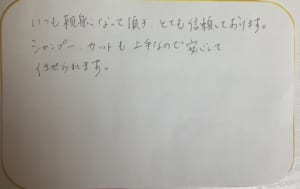 いつも親身になって頂き とても信頼しております。
シャンプー、カットも上手なので安心して
任せられます。